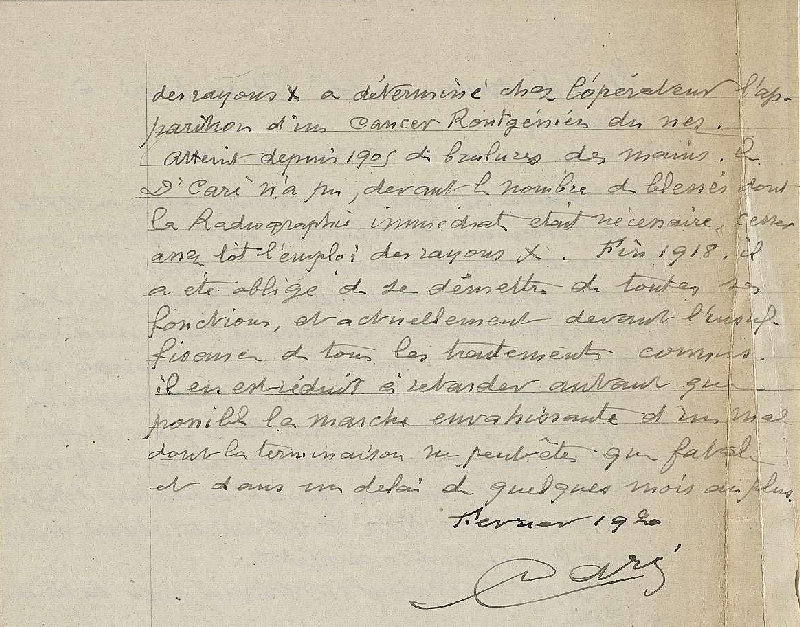 des rayons X a déterminé chez l'opérateur l'ap-
parition d'un Cancer Rontgénien du nez.
Atteint depuis 1905 de brulures des mains. le
Dr Caré n'a pu, devant le nombre de blessés dont
la Radiographie immediate était nécessaire, cesser
assez tôt l'emploi des rayons X. Fin 1918. il
a été obligé de se démettre de toutes ses
fonctions, et actuellement devant l'insuf-
fisance de tous les traitements connus.
il en est réduit à retarder autant que
possible la marche envahissante d'un mal
dont la terminaison ne peut être que fatale
et dans un delai de quelques mois au plus.
Fevrier 1920
Caré